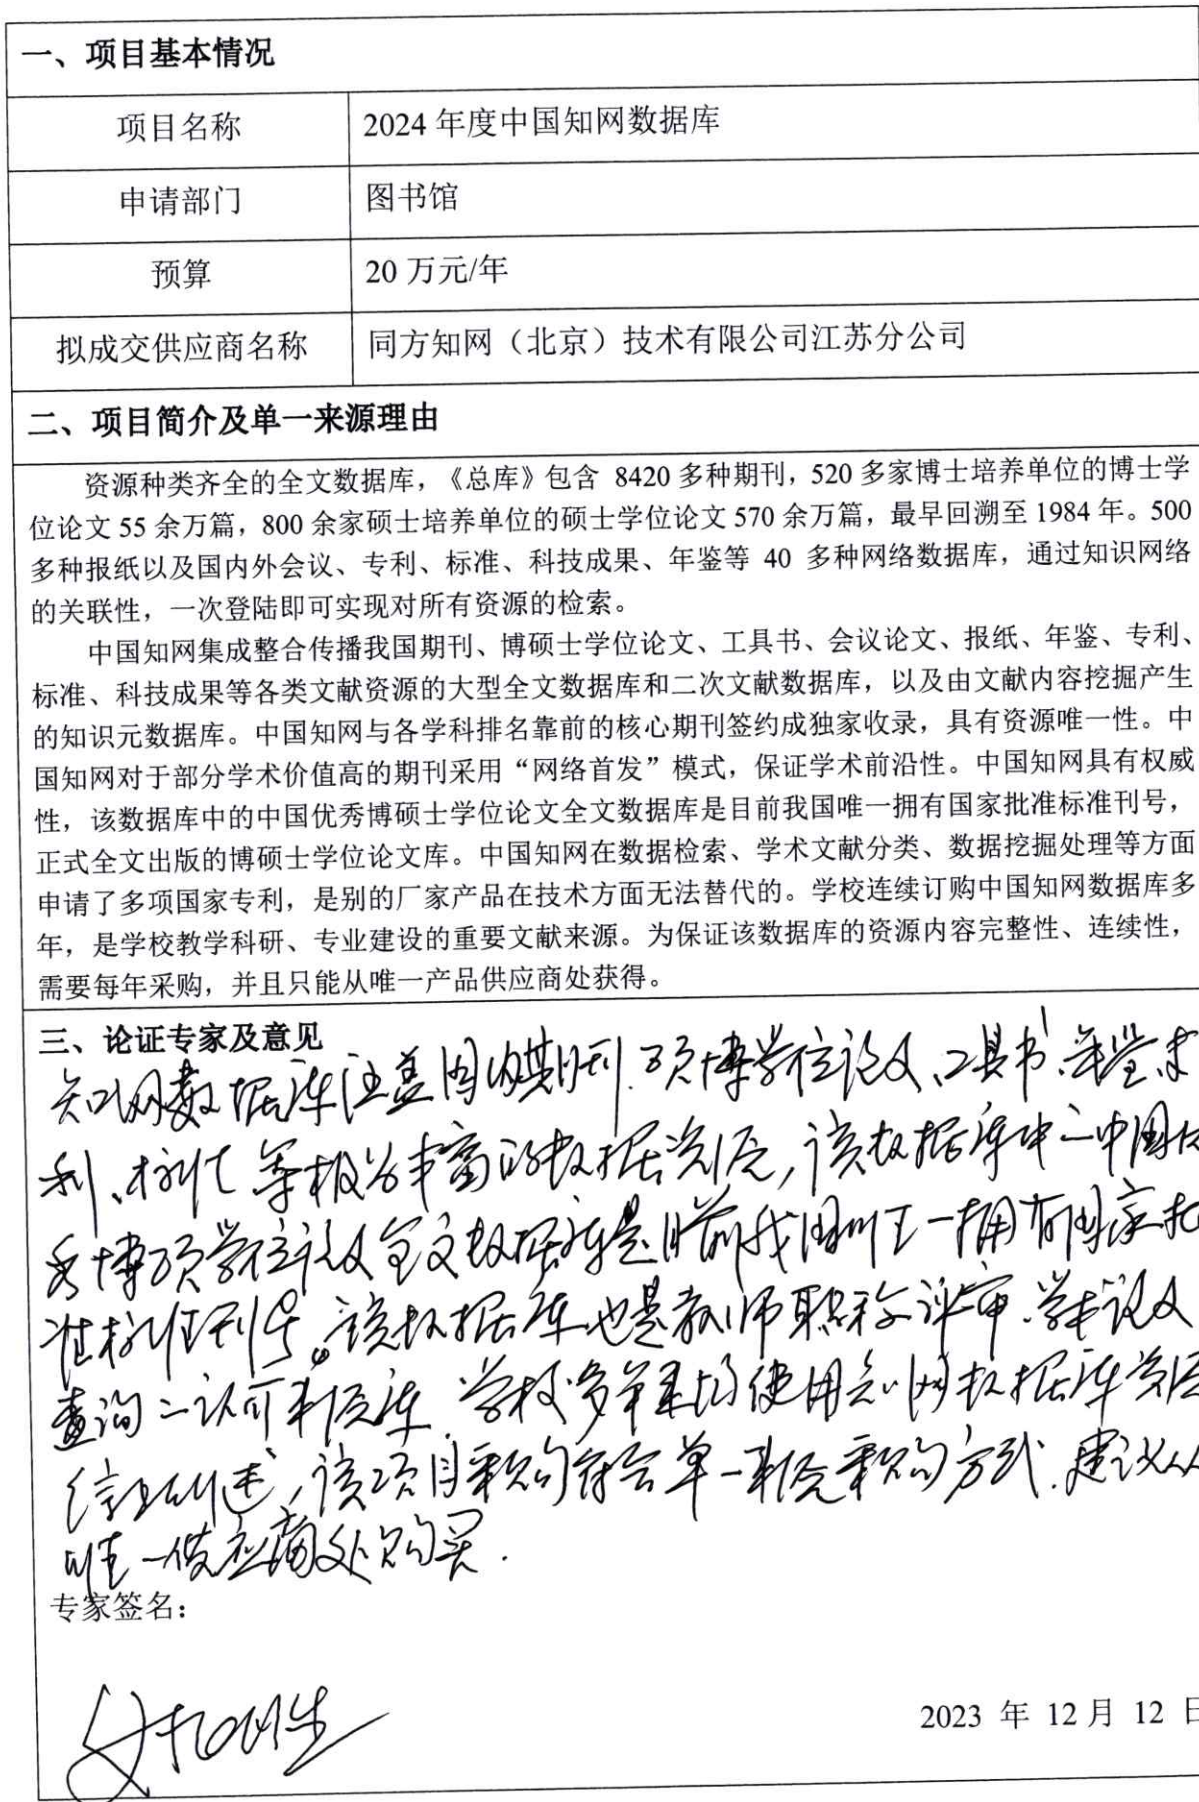 一、项目基本情况
项目名称 2024 年度中国知网数据库
申请部门 图书馆
预算 20 万元/年
拟成交供应商名称 同方知网（北京）技术有限公司江苏分公司
二、项目简介及单一来源理由
资源种类齐全的全文数据库，《总库》包含 8420 多种期刊，520 多家博士培养单位的博士学
位论文 55 余万篇，800 余家硕士培养单位的硕士学位论文 570 余万篇，最早回溯至 1984 年。500
多种报纸以及国内外会议、专利、标准、科技成果、年鉴等 40 多种网络数据库，通过知识网络
的关联性，一次登陆即可实现对所有资源的检索。
中国知网集成整合传播我国期刊、博硕士学位论文、工具书、会议论文、报纸、年鉴、专利、
标准、科技成果等各类文献资源的大型全文数据库和二次文献数据库，以及由文献内容挖掘产生
的知识元数据库。中国知网与各学科排名靠前的核心期刊签约成独家收录，具有资源唯一性。中
国知网对于部分学术价值高的期刊采用“网络首发”模式，保证学术前沿性。中国知网具有权威
性，该数据库中的中国优秀博硕士学位论文全文数据库是目前我国唯一拥有国家批准标准刊号，
正式全文出版的博硕士学位论文库。中国知网在数据检索、学术文献分类、数据挖掘处理等方面
申请了多项国家专利，是别的厂家产品在技术方面无法替代的。学校连续订购中国知网数据库多
年，是学校教学科研、专业建设的重要文献来源。为保证该数据库的资源内容完整性、连续性，
需要每年采购，并且只能从唯一产品供应商处获得。
三、论证专家及意见
知网数据库涵盖国内期刊、硕博学位论文、工具书、年鉴、专
利、标准等极为丰富的数据资源，该数据库中的中国优
秀博硕学位论文全文数据库是目前我国唯一拥有国家批
准标准刊号。该数据库也是教师职称评审、学术论文
查询的认可来源库。学校多年来均使用知网数据库资源
综上所述，该项目采购符合单一来源采购方式，建议从
唯一供应商处购买.
专家签名：
2023 年 12月 12 日